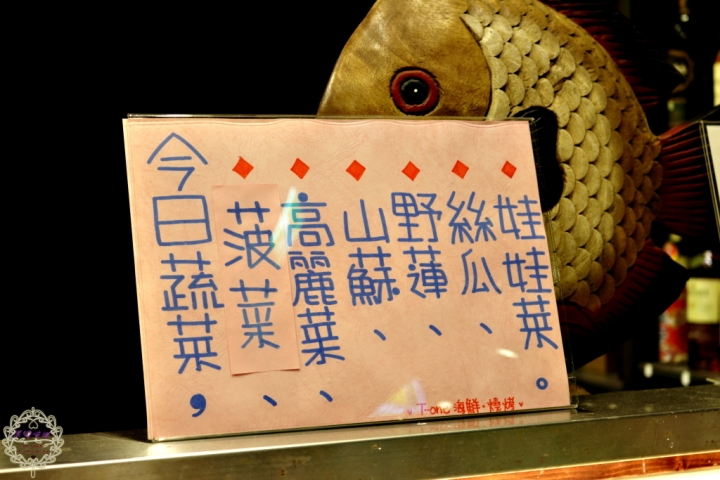 今日蔬菜，
菠菜、
高麗菜、
山蘇、
野蓮、
絲瓜、
娃娃菜。
T-one 海鮮·燒烤